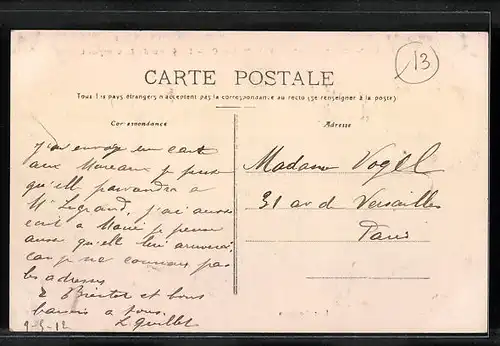 13
CARTE POSTALE
Tous les pays étrangers n'acceptent pas la correspondance au recto (se renseigner à la poste).
Correspondance
Adresse
J'ai envoyé une carte
aux Moreaux je pense
qu'elle parviendra a
Mr Legrand, j'ai aussi
écrit a Marie je pense
aussi qu'elle lui arrivera
car je ne connais pas
les adresses
Bientot et bons
baisers a tous.
L. Quillet
9-5-12
Madame Vogel
31 av de Versailles
Paris